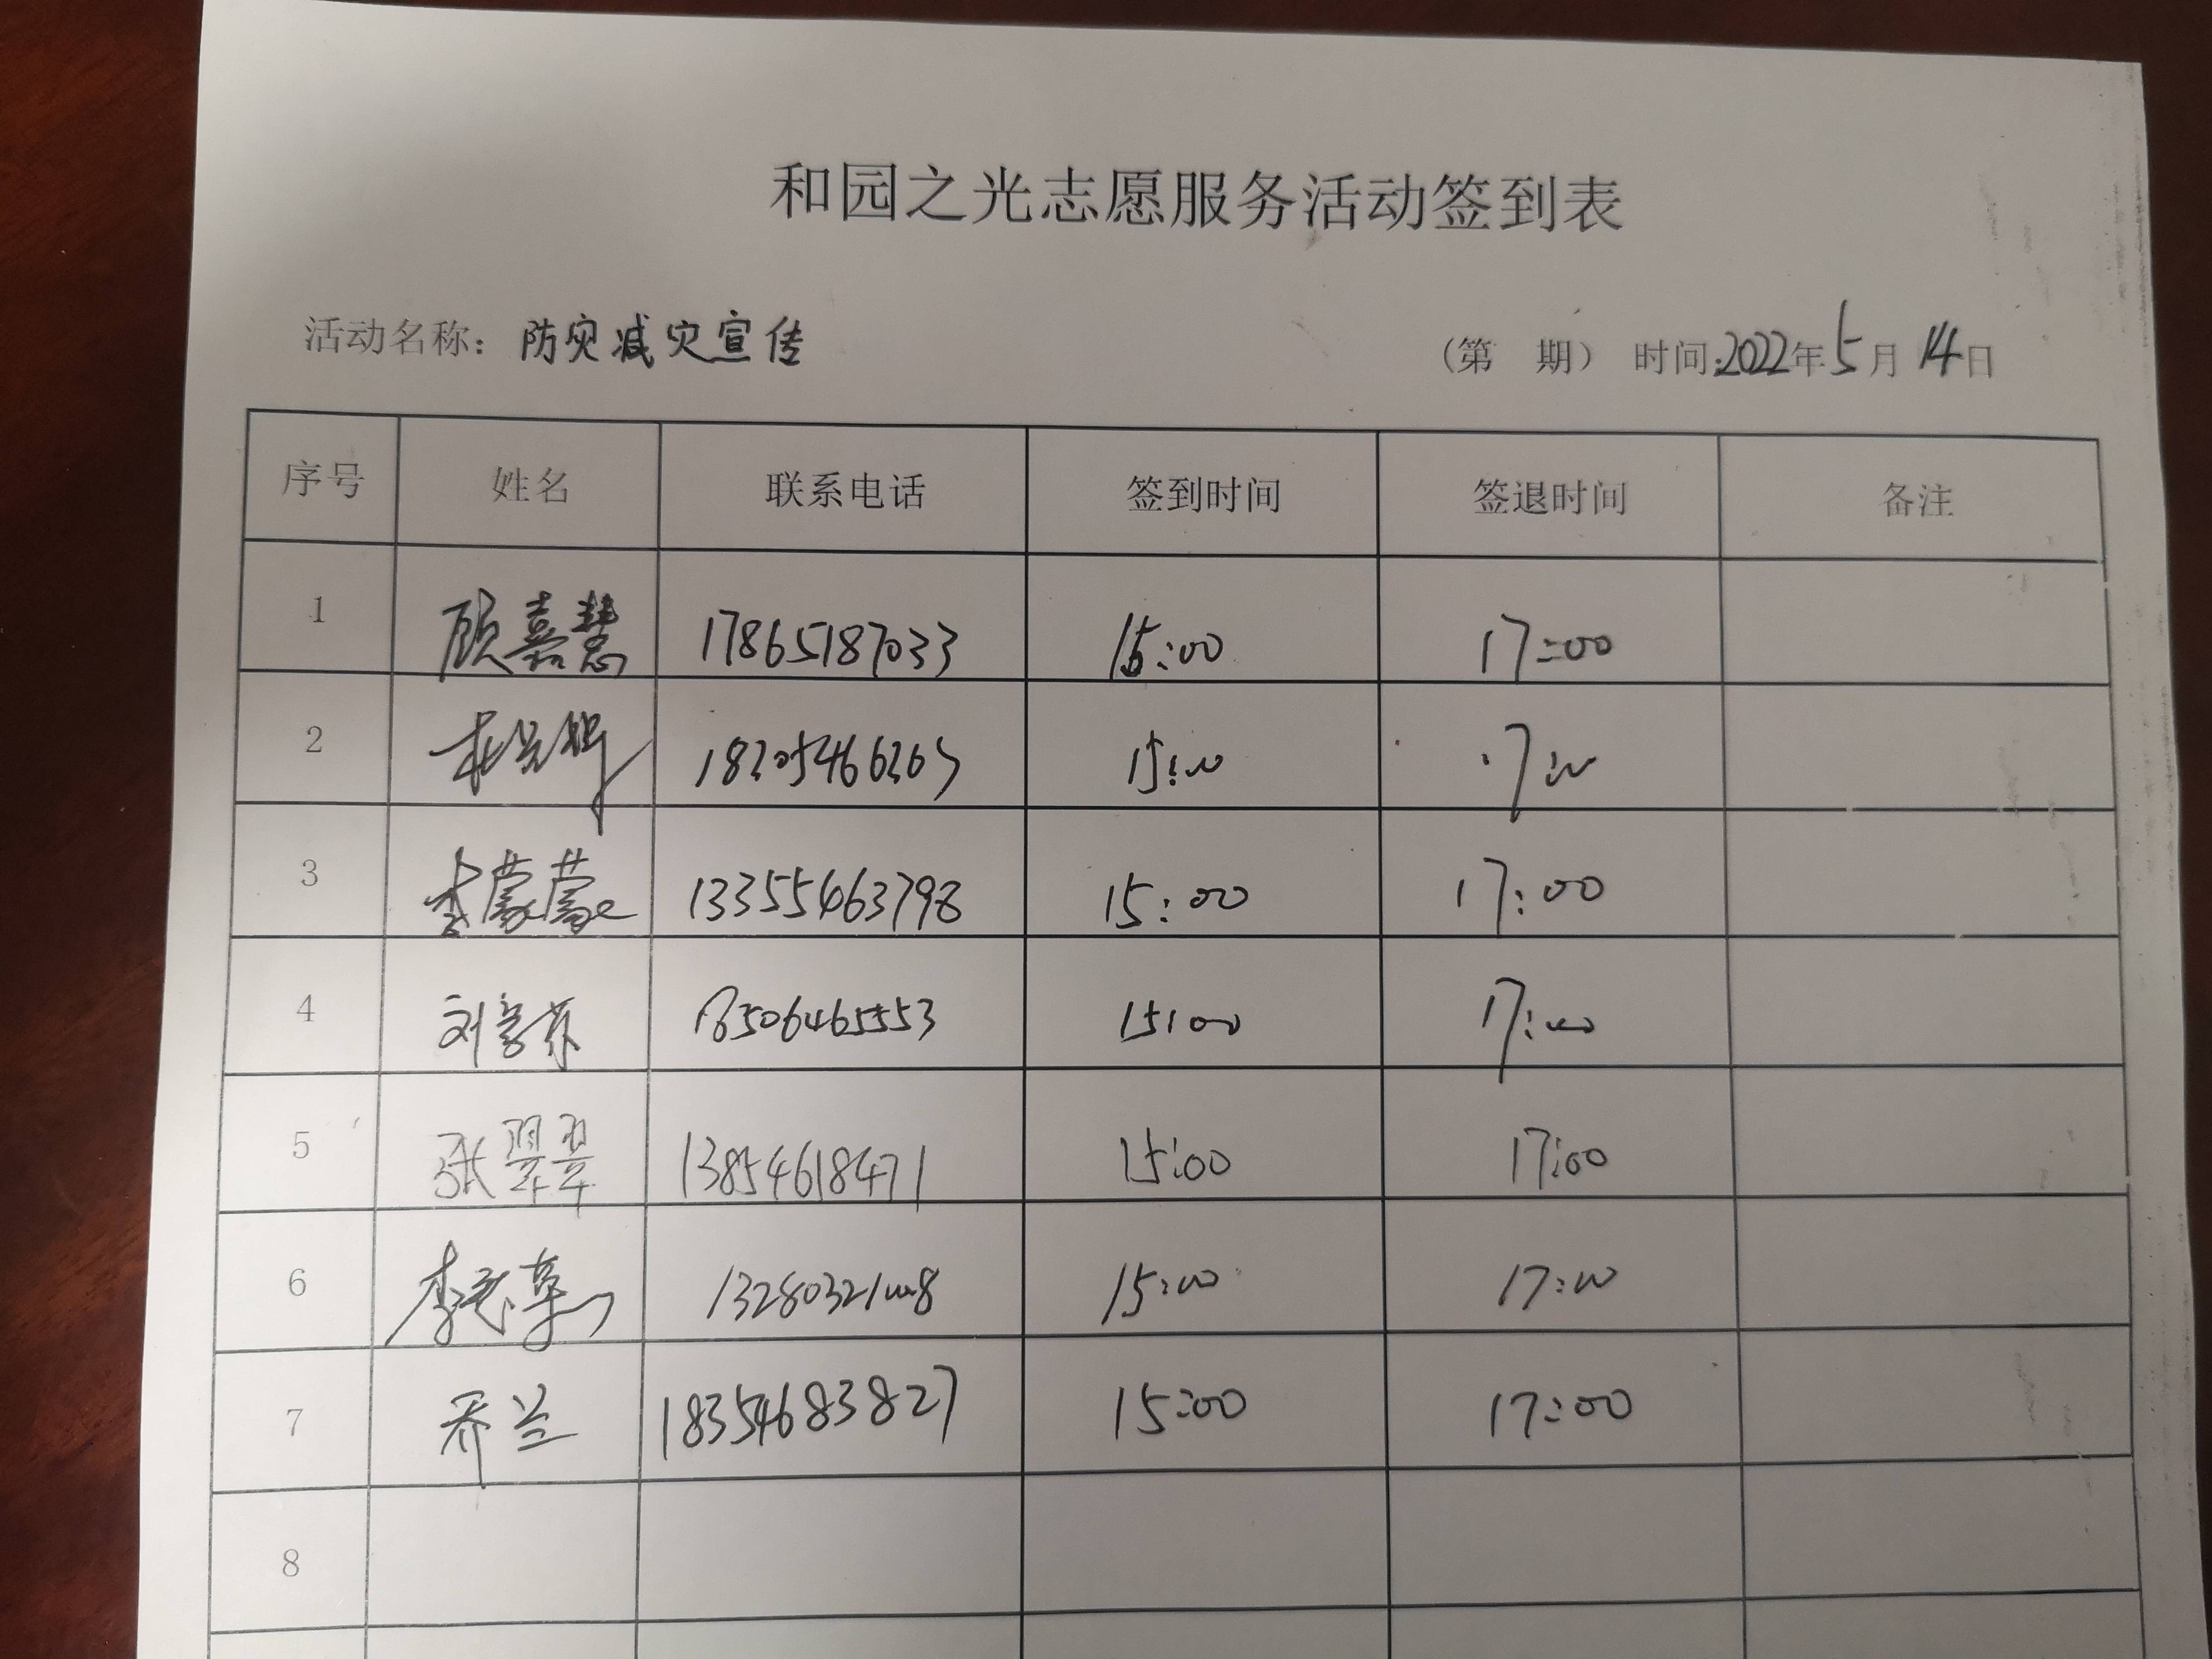 和园之光志愿服务活动签到表
活动名称：防灾减灾宣传 （第 期） 时间：2022年5月14日
序号 姓名 联系电话 签到时间 签退时间 备注
1 顾嘉慧 17865187033 15:00 17:00
2 15:00 17:00
3 李蒙蒙 13355463798 15:00 17:00
4 刘 18506465553 15:00 17:00
5 张翠翠 13854618471 15:00 17:00
6 李 15:00 17:00
7 乔兰 18354683827 15:00 17:00
8